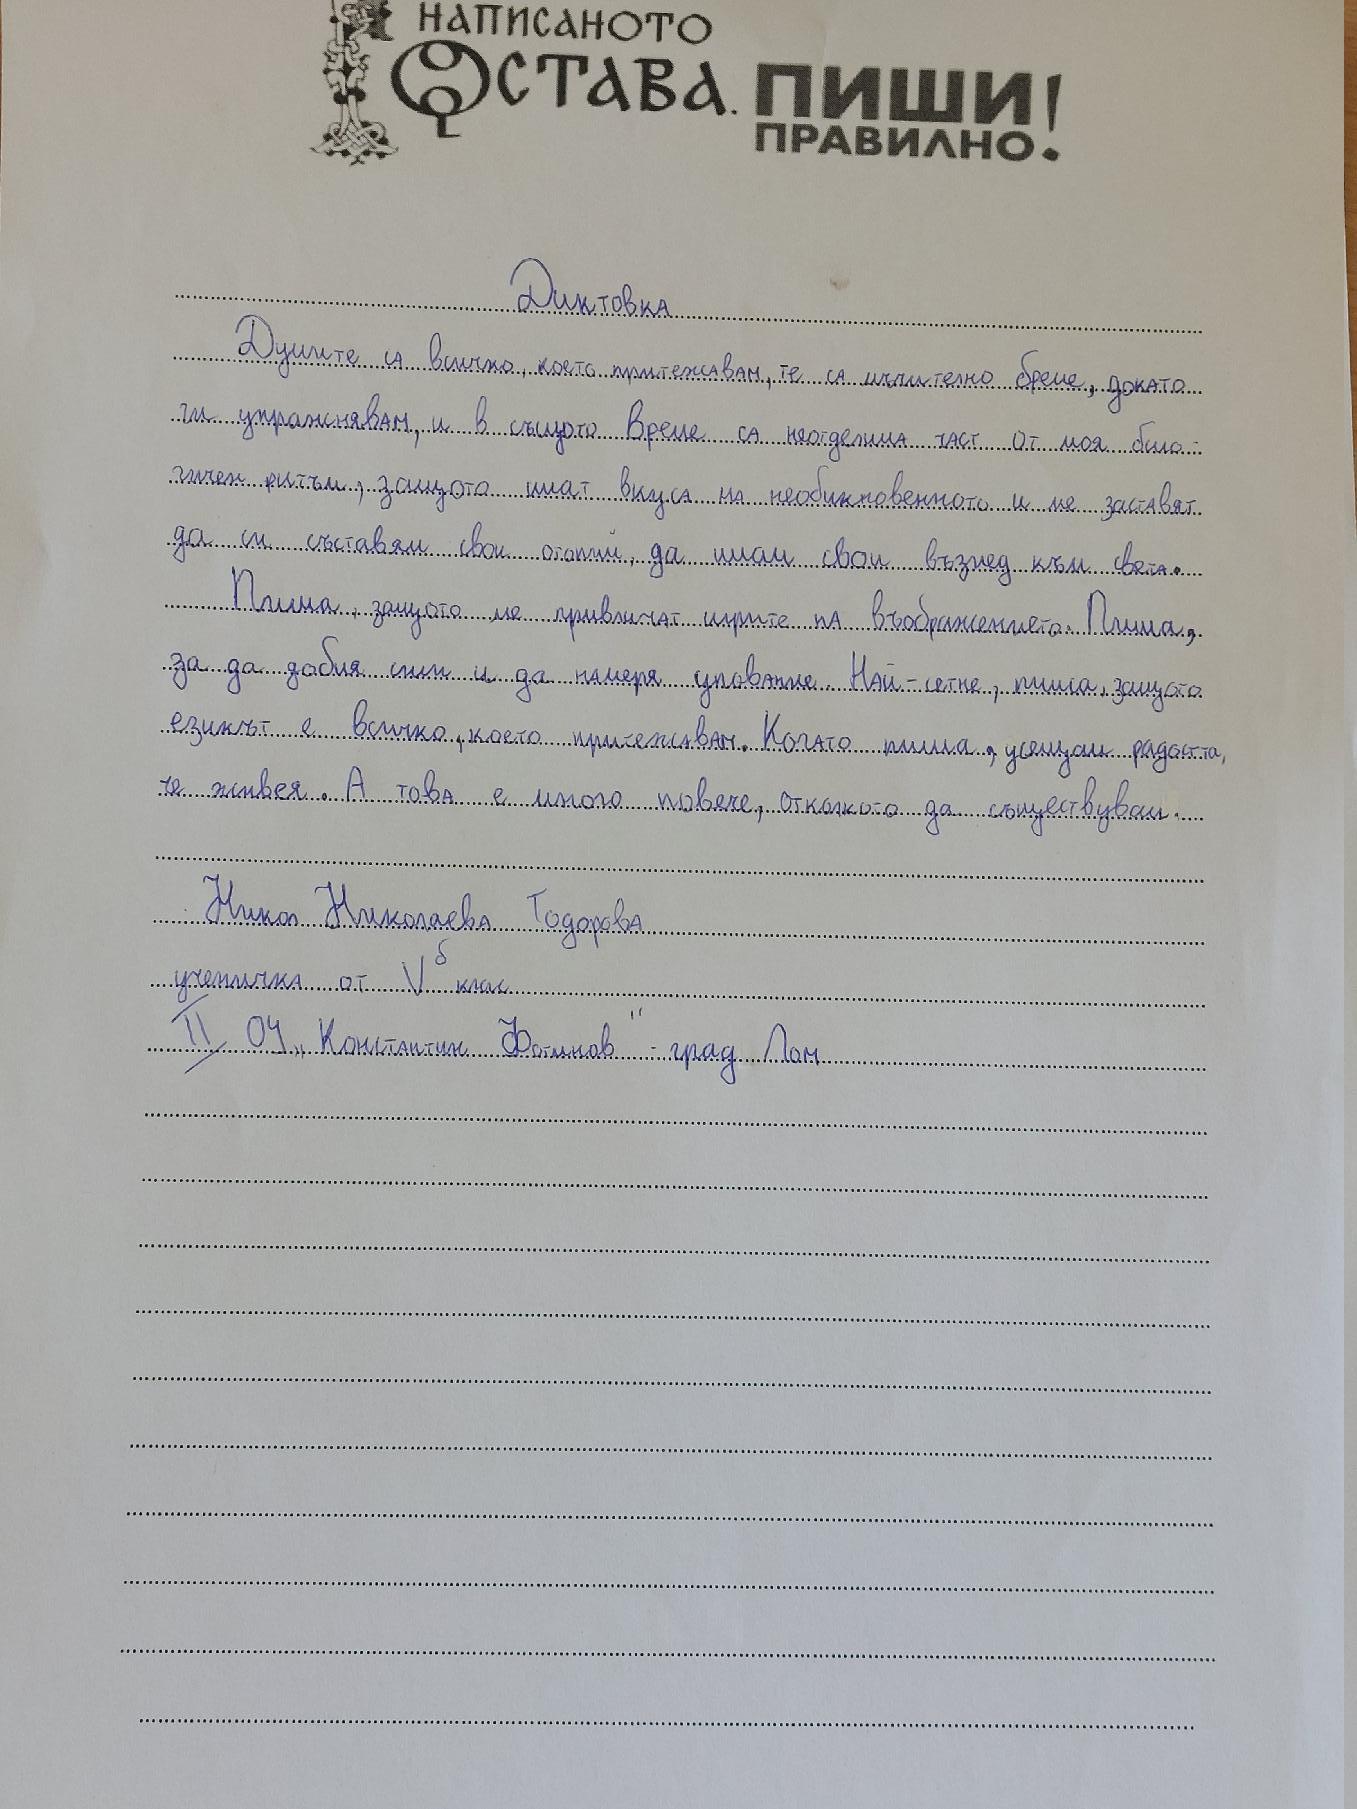 НАПИСАНОТО
ОСТАВА. ПИШИ
ПРАВИЛНО!
Диктовка
Думите са всичко, което притежавам, те са мъчително бреме, докато
ги упражнявам, и в същото време са неотделима част от моя биоло-
гичен ритъм, защото имат вкуса на необикновенното и ме заставят
да си съставям свои утопии, да имам свои възглед към света.
Пиша, защото ме привличат игрите на въображението. Пиша,
за да добия сили и да намеря упование. Най-сетне, пиша, защото
езикът е всичко, което притежавам. Когато пиша, усещам радостта,
че живея. А това е много повече, отколкото да съществувам.
Никол Николаева Тодорова
ученичка от V б клас
II ОУ „Константин Фотинов" - град Лом